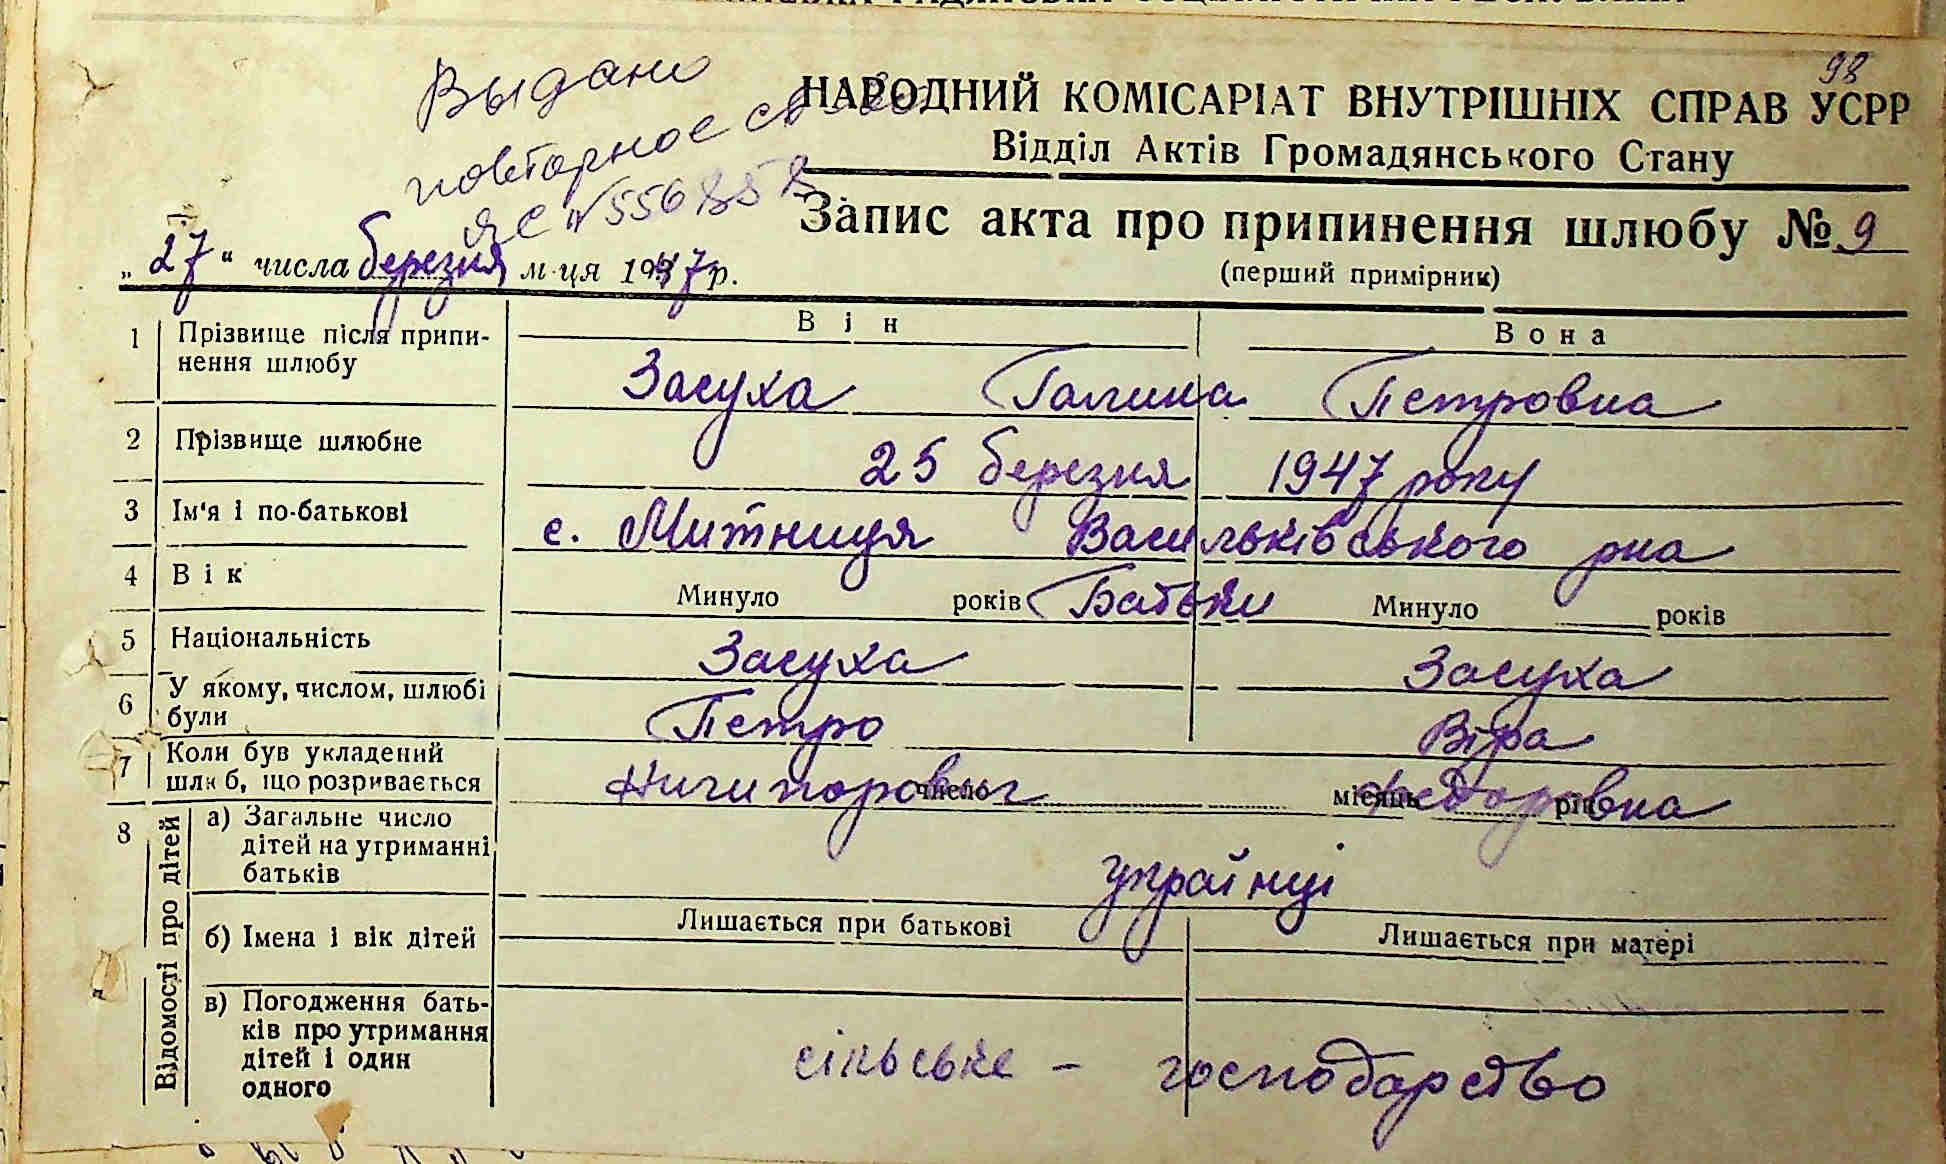 98
Выдано
повторное св-во
ЯС №556858
НАРОДНИЙ КОМІСАРІАТ ВНУТРІШНІХ СПРАВ УСРР
Відділ Актів Громадянського Стану
Запис акта про припинення шлюбу № 9
(перший примірник)
„27" числа березня м-ця 1947 р.
Він Вона
1 Прізвище після припинення шлюбу
Засуха Галина Петровна
2 Прізвище шлюбне
25 березня 1947 року
3 Ім'я і по-батькові
с. Митниця Васильківського рна
4 Вік
Минуло років Батьки Минуло років
5 Національність
Засуха Засуха
6 У якому, числом, шлюбі були
Петро Віра
7 Коли був укладений шлюб, що розривається
число місяць рік
Ничипорович Федоровна
8 Відомості про дітей
а) Загальне число дітей на утриманні батьків
українці
б) Імена і вік дітей
Лишається при батькові Лишається при матері
в) Погодження батьків про утримання дітей і один одного
сільське - господарство